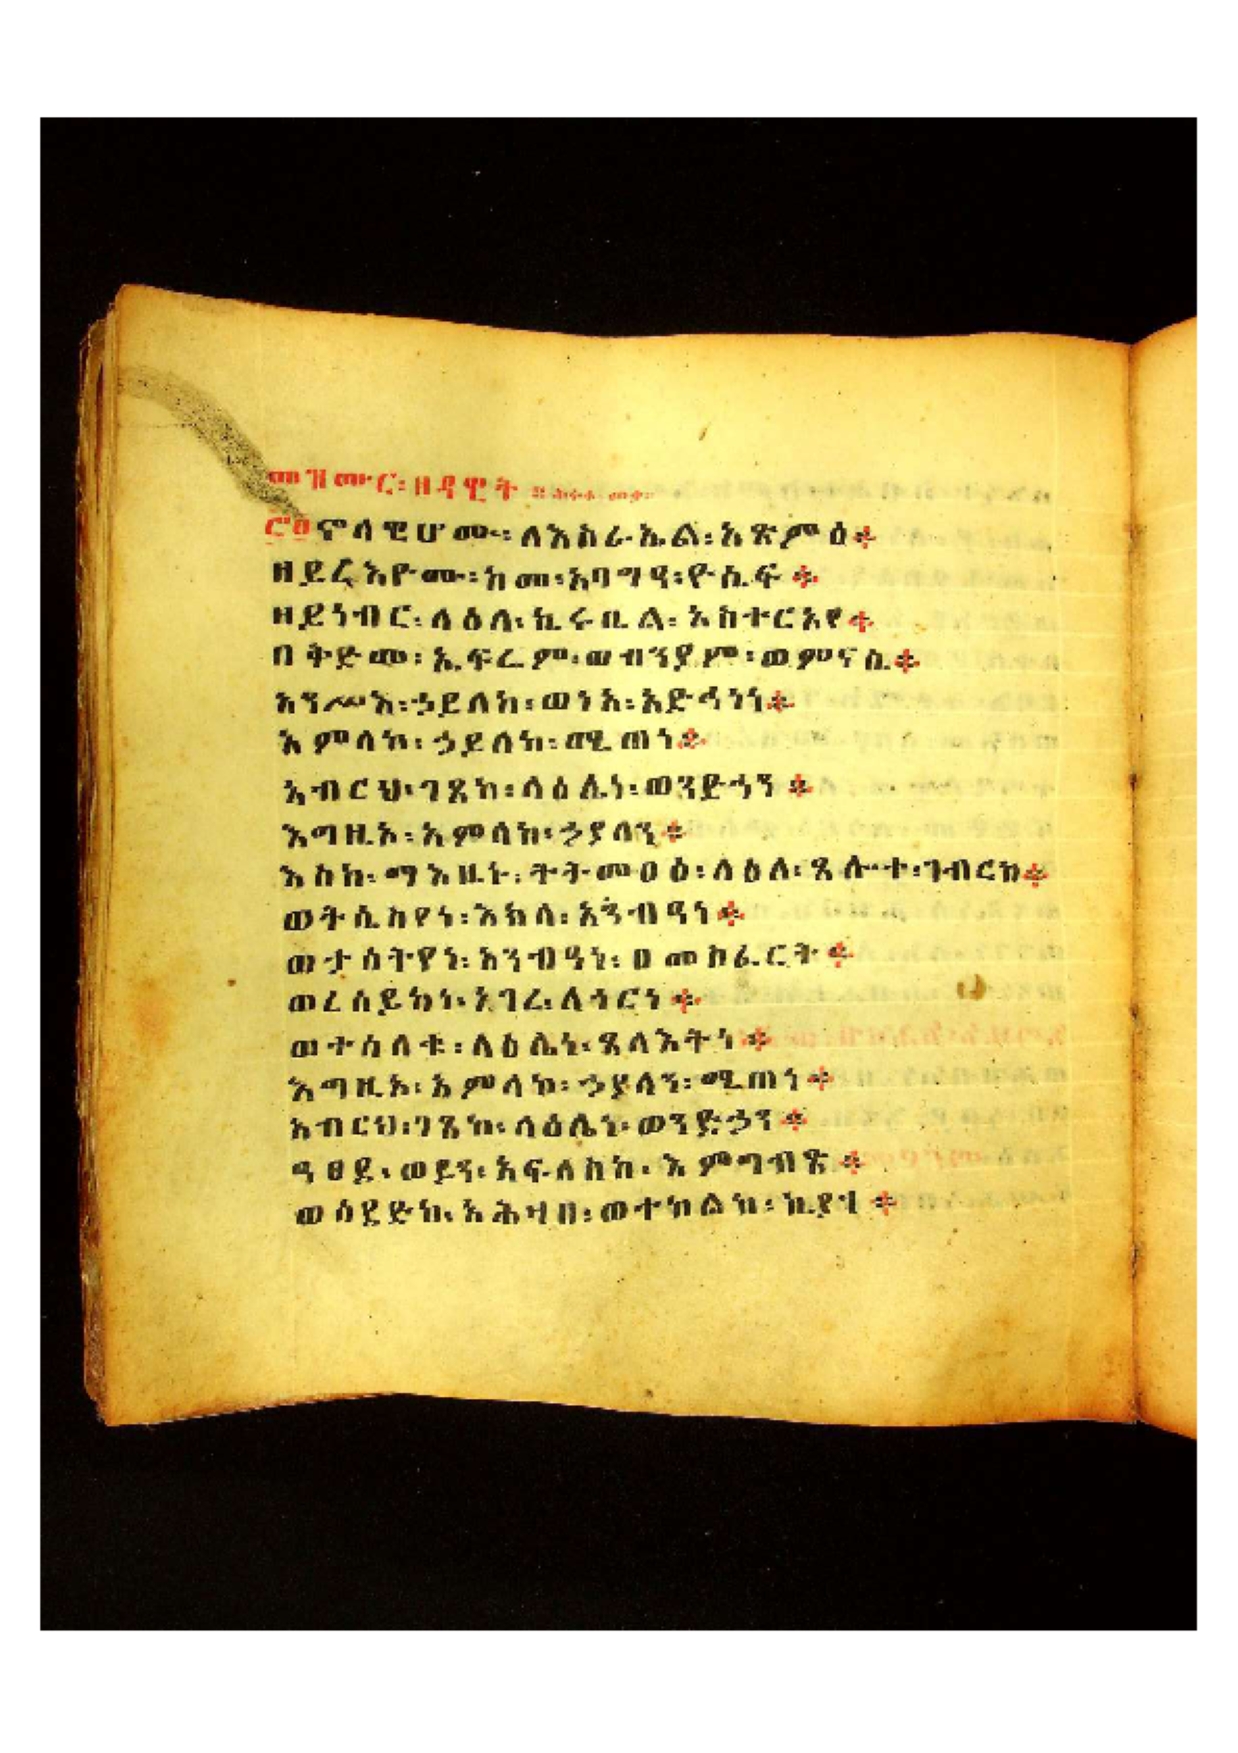 መዝሙር፡ዘዳዊት።
ኖላዊሆሙ፡ለእስራኤል፡አጽምዕ፨
ዘይርእዮሙ፡ከመ፡አባግዓ፡ዮሴፍ፨
ዘይነብር፡ላዕለ፡ኪሩቤል፡አስተርአየ፨
በቅድመ፡ኤፍሬም፡ወብንያም፡ወምናሴ፨
አንሥእ፡ኃይለከ፡ወነአ፡አድኅነነ፨
አምላከ፡ኃይልከ፡ሚጠነ፨
አብርህ፡ገጸከ፡ላዕሌነ፡ወንድኅን፨
እግዚኦ፡አምላከ፡ኃያላን፨
እስከ፡ማእዜኑ፡ትትመዐዕ፡ላዕለ፡ጸሎተ፡ገብርከ፨
ወትሴስየነ፡እክለ፡አንብዓነ፨
ወታሰትየነ፡አንብዓነ፡በመስፈርት፨
ወረሰይከነ፡አገረ፡ለጎርነ፨
ወተሳለቁ፡ላዕሌነ፡ጸላእትነ፨
እግዚኦ፡አምላከ፡ኃያላን፡ሚጠነ፨
አብርህ፡ገጸከ፡ላዕሌነ፡ወንድኅን፨
ዓፀደ፡ወይን፡አፍለስከ፡እምግብጽ፨
ወሰደድከ፡አሕዛበ፡ወተከልከ፡ኪያሃ፨